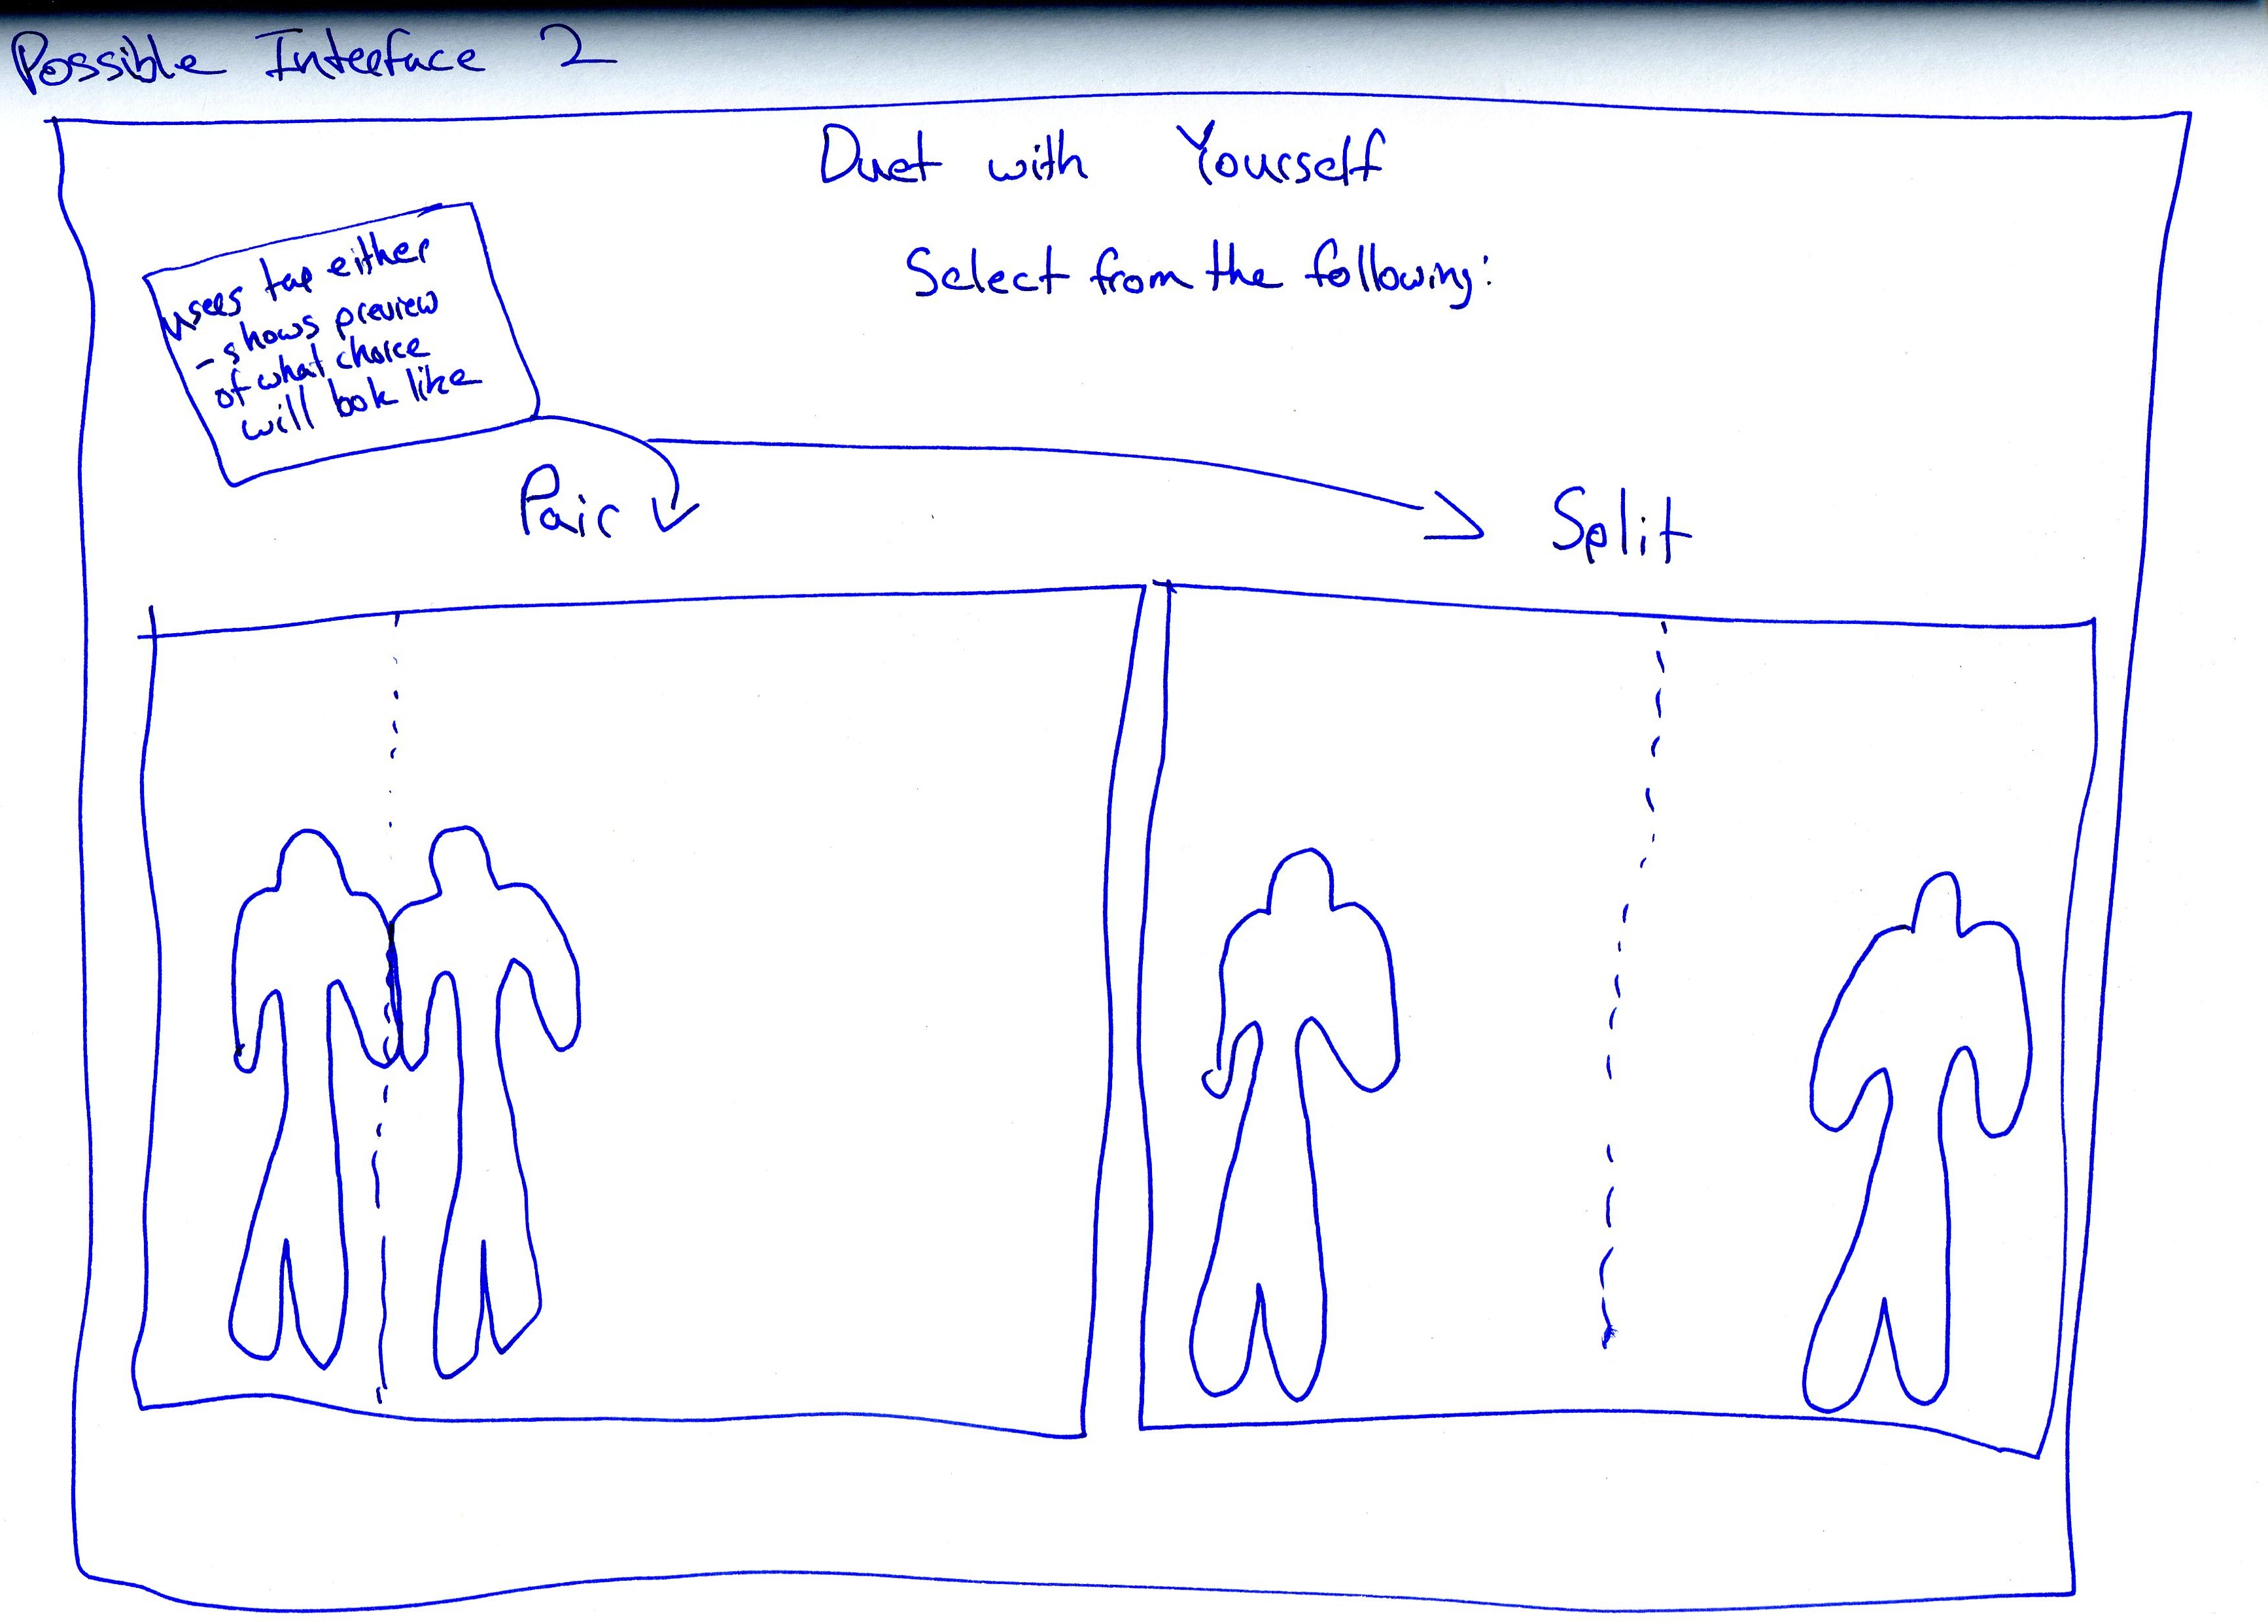 Possible Interface 2
Duet with Yourself
Select from the following:
users tap either
- shows preview
of what choice
will look like
Pair
Split